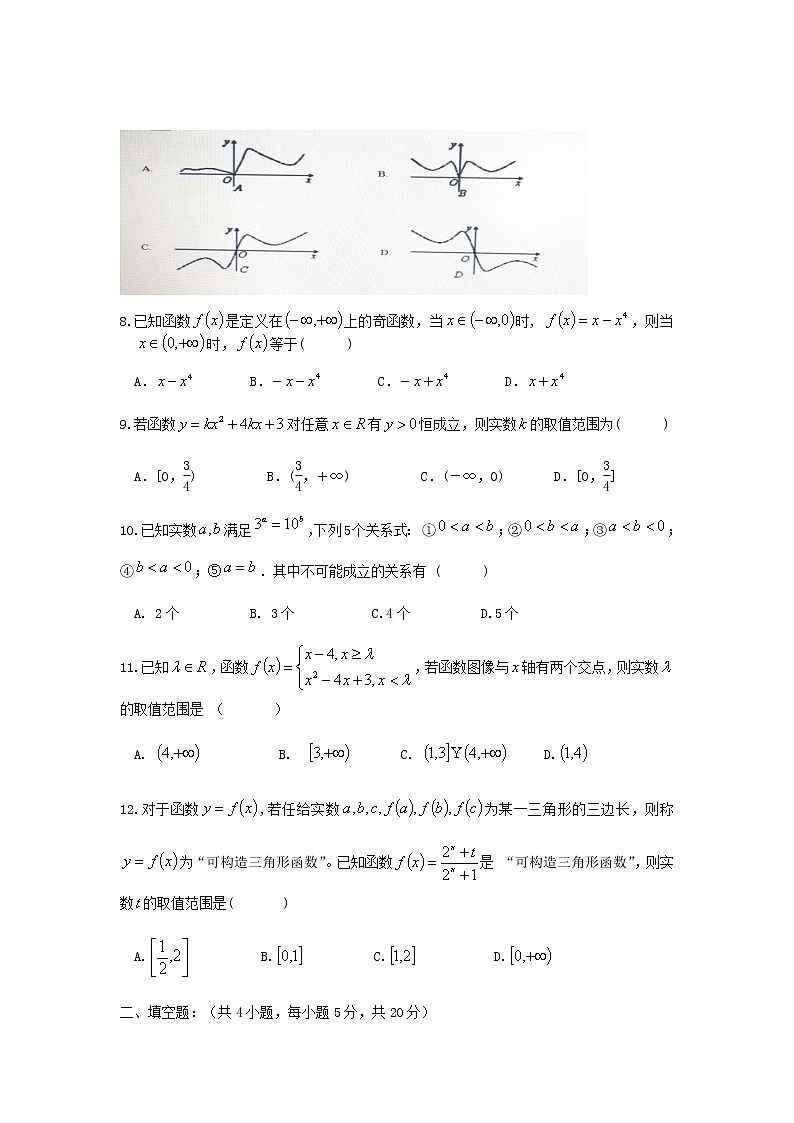 A. y O A x B. y O B x
C. y O C x D. y O D x
8.已知函数f(x)是定义在(−∞,+∞)上的奇函数，当x∈(−∞,0)时, f(x)=x−x⁴,则当
x∈(0,+∞)时,f(x)等于( )
A.x−x⁴ B.−x−x⁴ C.−x+x⁴ D.x+x⁴
9.若函数y=kx²+4kx+3对任意x∈R有y>0恒成立，则实数k的取值范围为( )
A.[0,3/4) B.(3/4,+∞) C.(−∞,0) D.[0,3/4]
10.已知实数a,b满足3ᵃ=10ᵇ,下列5个关系式：①0<a<b;②0<b<a;③a<b<0;
④b<a<0;⑤a=b．其中不可能成立的关系有 ( )
A. 2个 B. 3个 C.4个 D.5个
11.已知λ∈R,函数f(x)={x−4,x≥λ x²−4x+3,x<λ,若函数图像与x轴有两个交点，则实数λ
的取值范围是 ( )
A. (4,+∞) B. [3,+∞) C. (1,3]Y(4,+∞) D.(1,4)
12.对于函数y=f(x),若任给实数a,b,c,f(a),f(b),f(c)为某一三角形的三边长，则称
y=f(x)为“可构造三角形函数”。已知函数f(x)=(2ˣ+t)/(2ˣ+1)是 “可构造三角形函数”，则实
数t的取值范围是( )
A.[1/2,2] B.[0,1] C.[1,2] D.[0,+∞)
二、填空题：（共4小题，每小题5分，共20分）